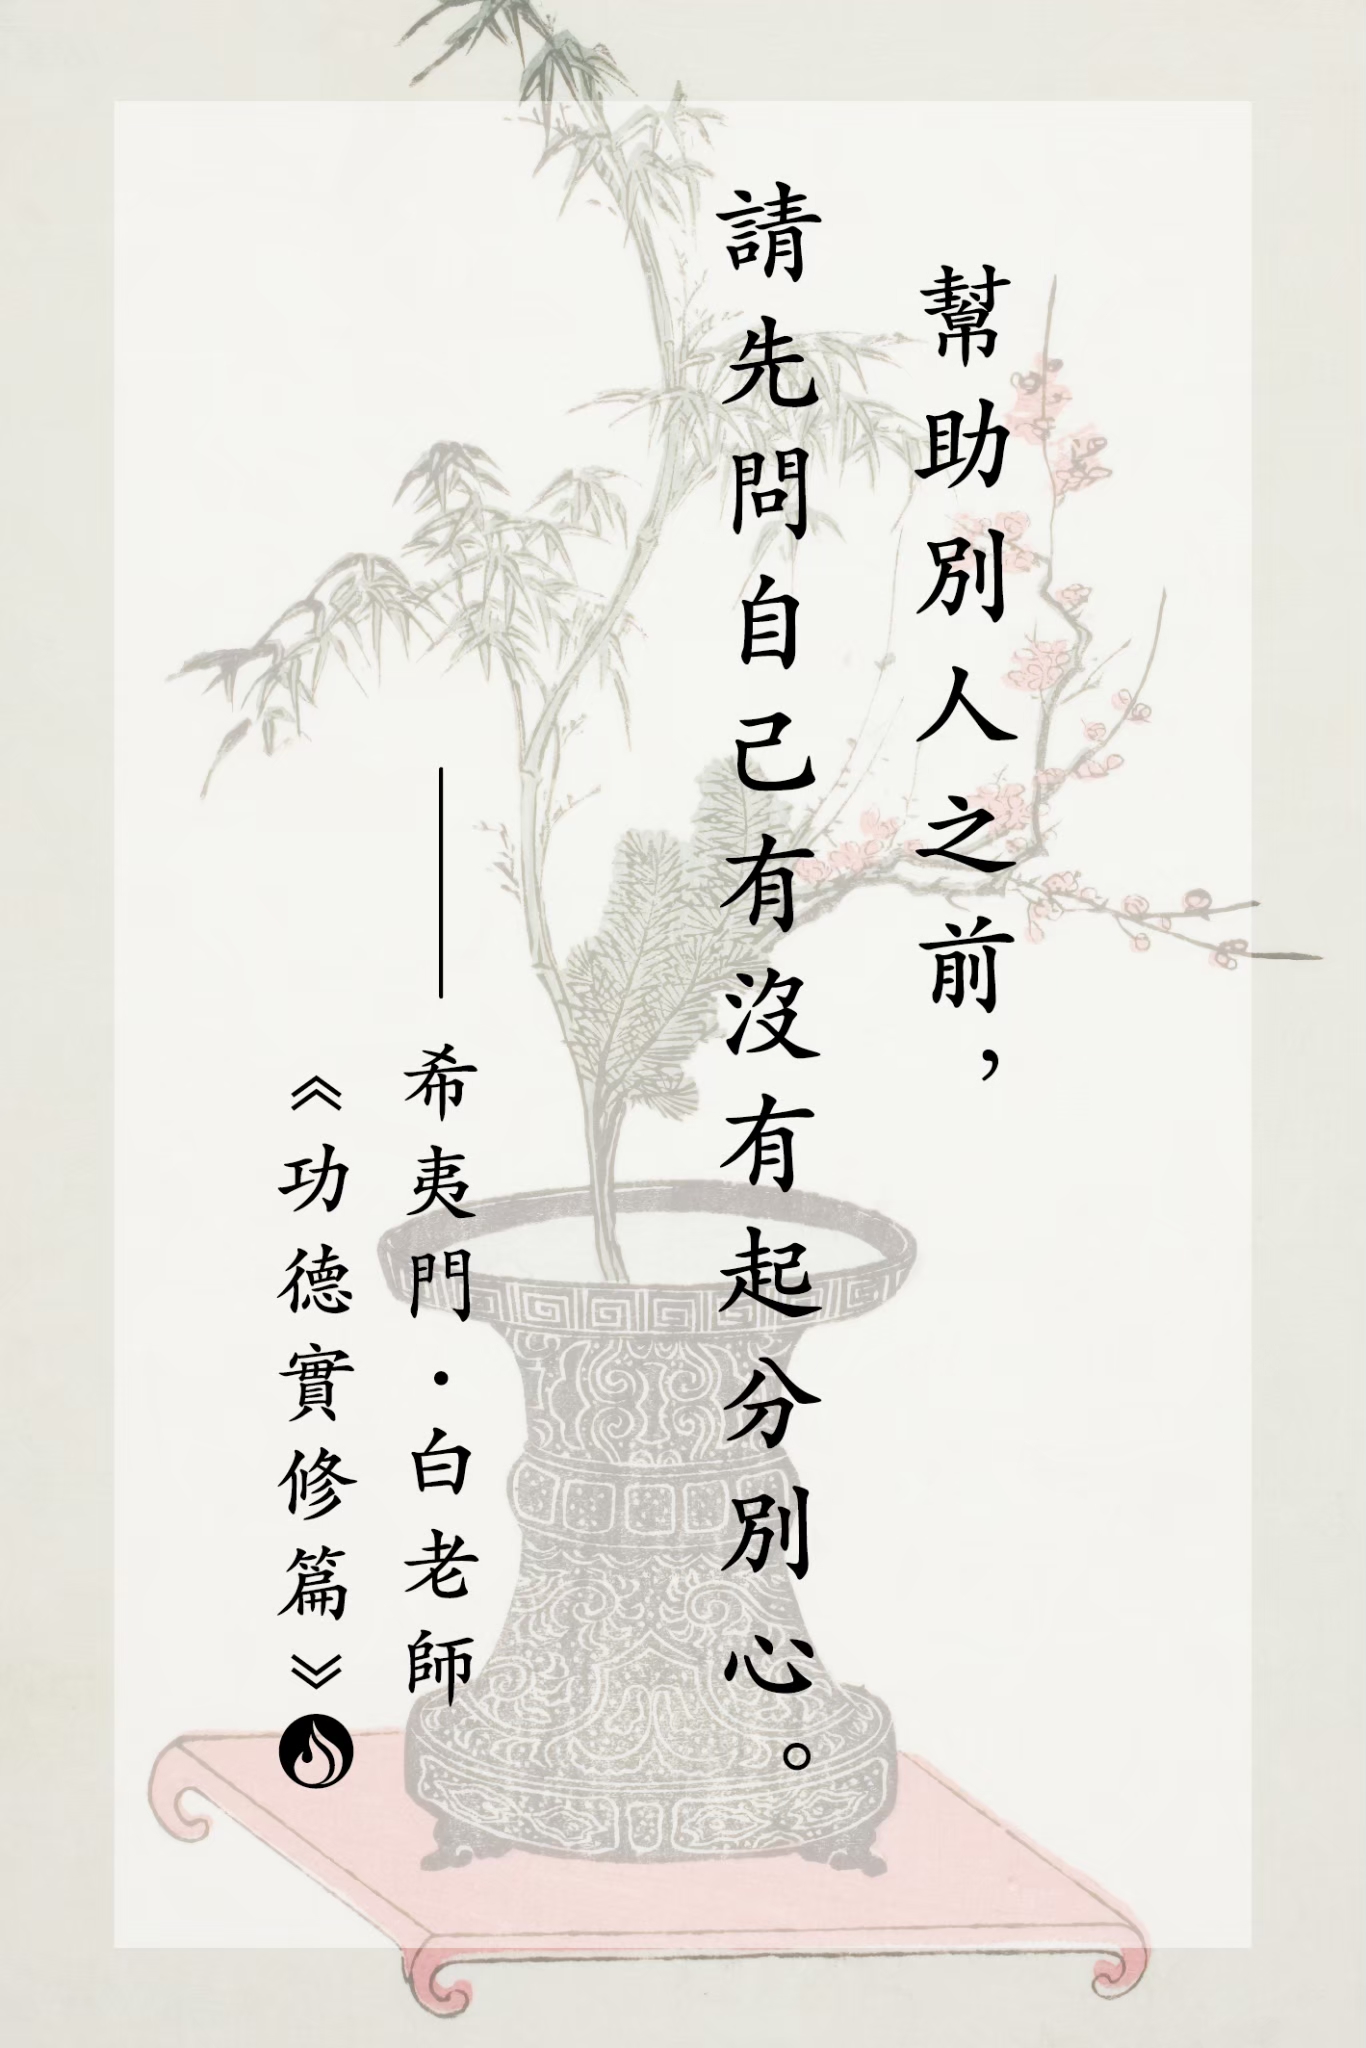 幫助別人之前，
請先問自己有沒有起分別心。
——希夷門·白老師
《功德實修篇》